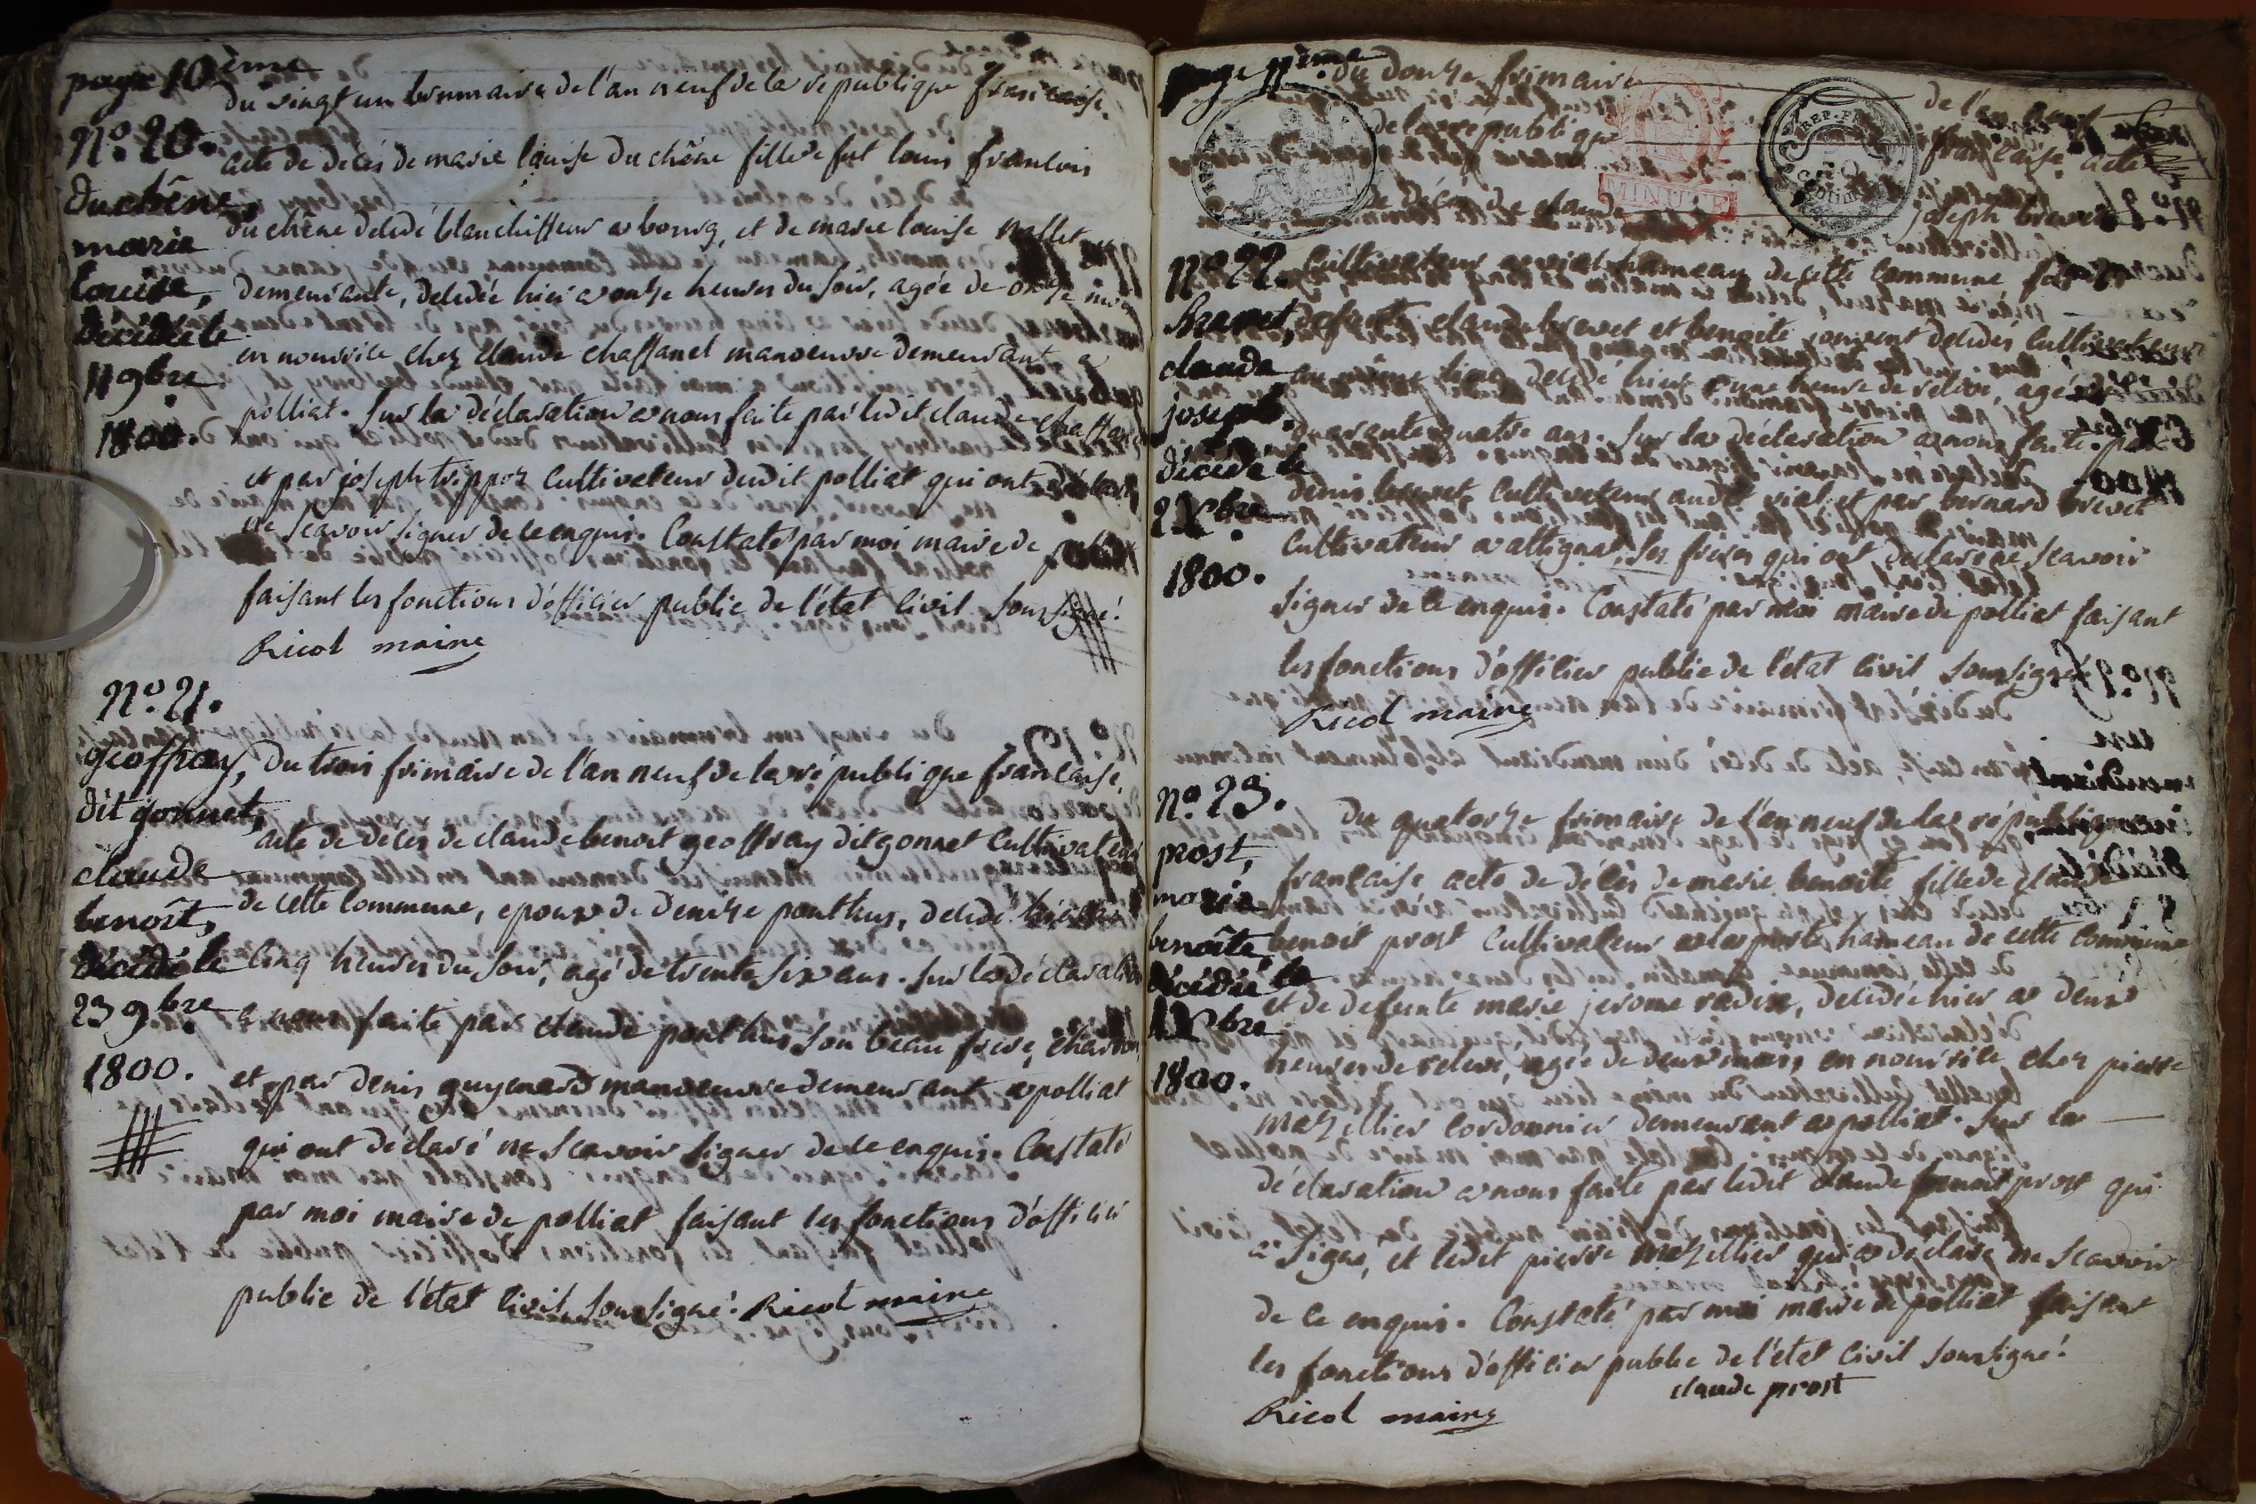 page 10ème
du vingt un brumaire de l'an neuf de la republique francaise.
N.o 20.
acte de décès de marie louise duchêne fille de fut louis francois
duchêne,
duchêne décédé blanchisseur a bourg, et de marie louise nallet y
marie
louise,
demeurante, décédée hier a onze heures du soir, agée de onze mois
décédée le
en nourrice chez claude chaffanel manoeuvre demeurant a
11 9bre
polliat. Sur la déclaration a nous faite par ledit claude chaffanel
1800.
et par joseph trippoz cultivateur dudit polliat qui ont déclaré
ne scavoir signer de ce enquis. Constaté par moi maire de polliat
faisant les fonctions d'officier public de l'état civil soussigné.
Ricol maire
N.o 21.
geoffray,
du trois frimaire de l'an neuf de la république francaise,
dit gonnet,
acte de décès de claude benoit geoffray dit gonnet cultivateur
claude
benoît,
de cette commune, epoux de denise ponthus, décédé hier a
décédé le
cinq heures du soir, agé de trente six ans. Sur la déclaration
23 9bre
a nous faite par claude ponthus son beau frere, charron
1800.
et par denis guyenard manoeuvre demeurant a polliat
qui ont déclaré ne scavoir signer de ce enquis. Constaté
par moi maire de polliat faisant les fonctions d'officier
public de l'état civil soussigné. Ricol maire
page 11ème.
du douze frimaire de l'an neuf
de la republique francaise. acte
de décès de claude joseph brevet
N.o 22.
cultivateur a vial hameau de cette commune fils de
Brevet,
defunts claude brevet et benoite convent décédés cultivateurs
claude
au même lieu, décédé hier a une heure de relevé, agé de
joseph.
quarante quatre ans. Sur la déclaration a nous faite par
décédé le
denis brevet cultivateur audit vial et par bernard brevet
2 Xbre
cultivateur a attignat, ses frères qui ont déclaré ne scavoir
1800.
signer de ce enquis. Constaté par moi maire de polliat faisant
les fonctions d'officier public de l'état civil soussigné.
Ricol maire
N.o 23.
du quatorze frimaire de l'an neuf de la république
prost,
francaise acte de décès de marie benoite fille de claude
marie
benoîte,
benoit prost cultivateur a la poste hameau de cette commune
décédée le
et de defunte marie jerome radix, décédée hier a deux
4 Xbre
heures de relevé, agée de deux mois, en nourrice chez pierre
1800.
mazillier cordonnier demeurant a polliat. Sur la
déclaration a nous faite par ledit claude benoit prost qui
a signé, et ledit pierre mazillier qui a déclaré ne scavoir
de ce enquis. Constaté par moi maire de polliat faisant
les fonctions d'officier public de l'état civil soussigné.
claude prost
Ricol maire
MINUTE
REP. FRA.